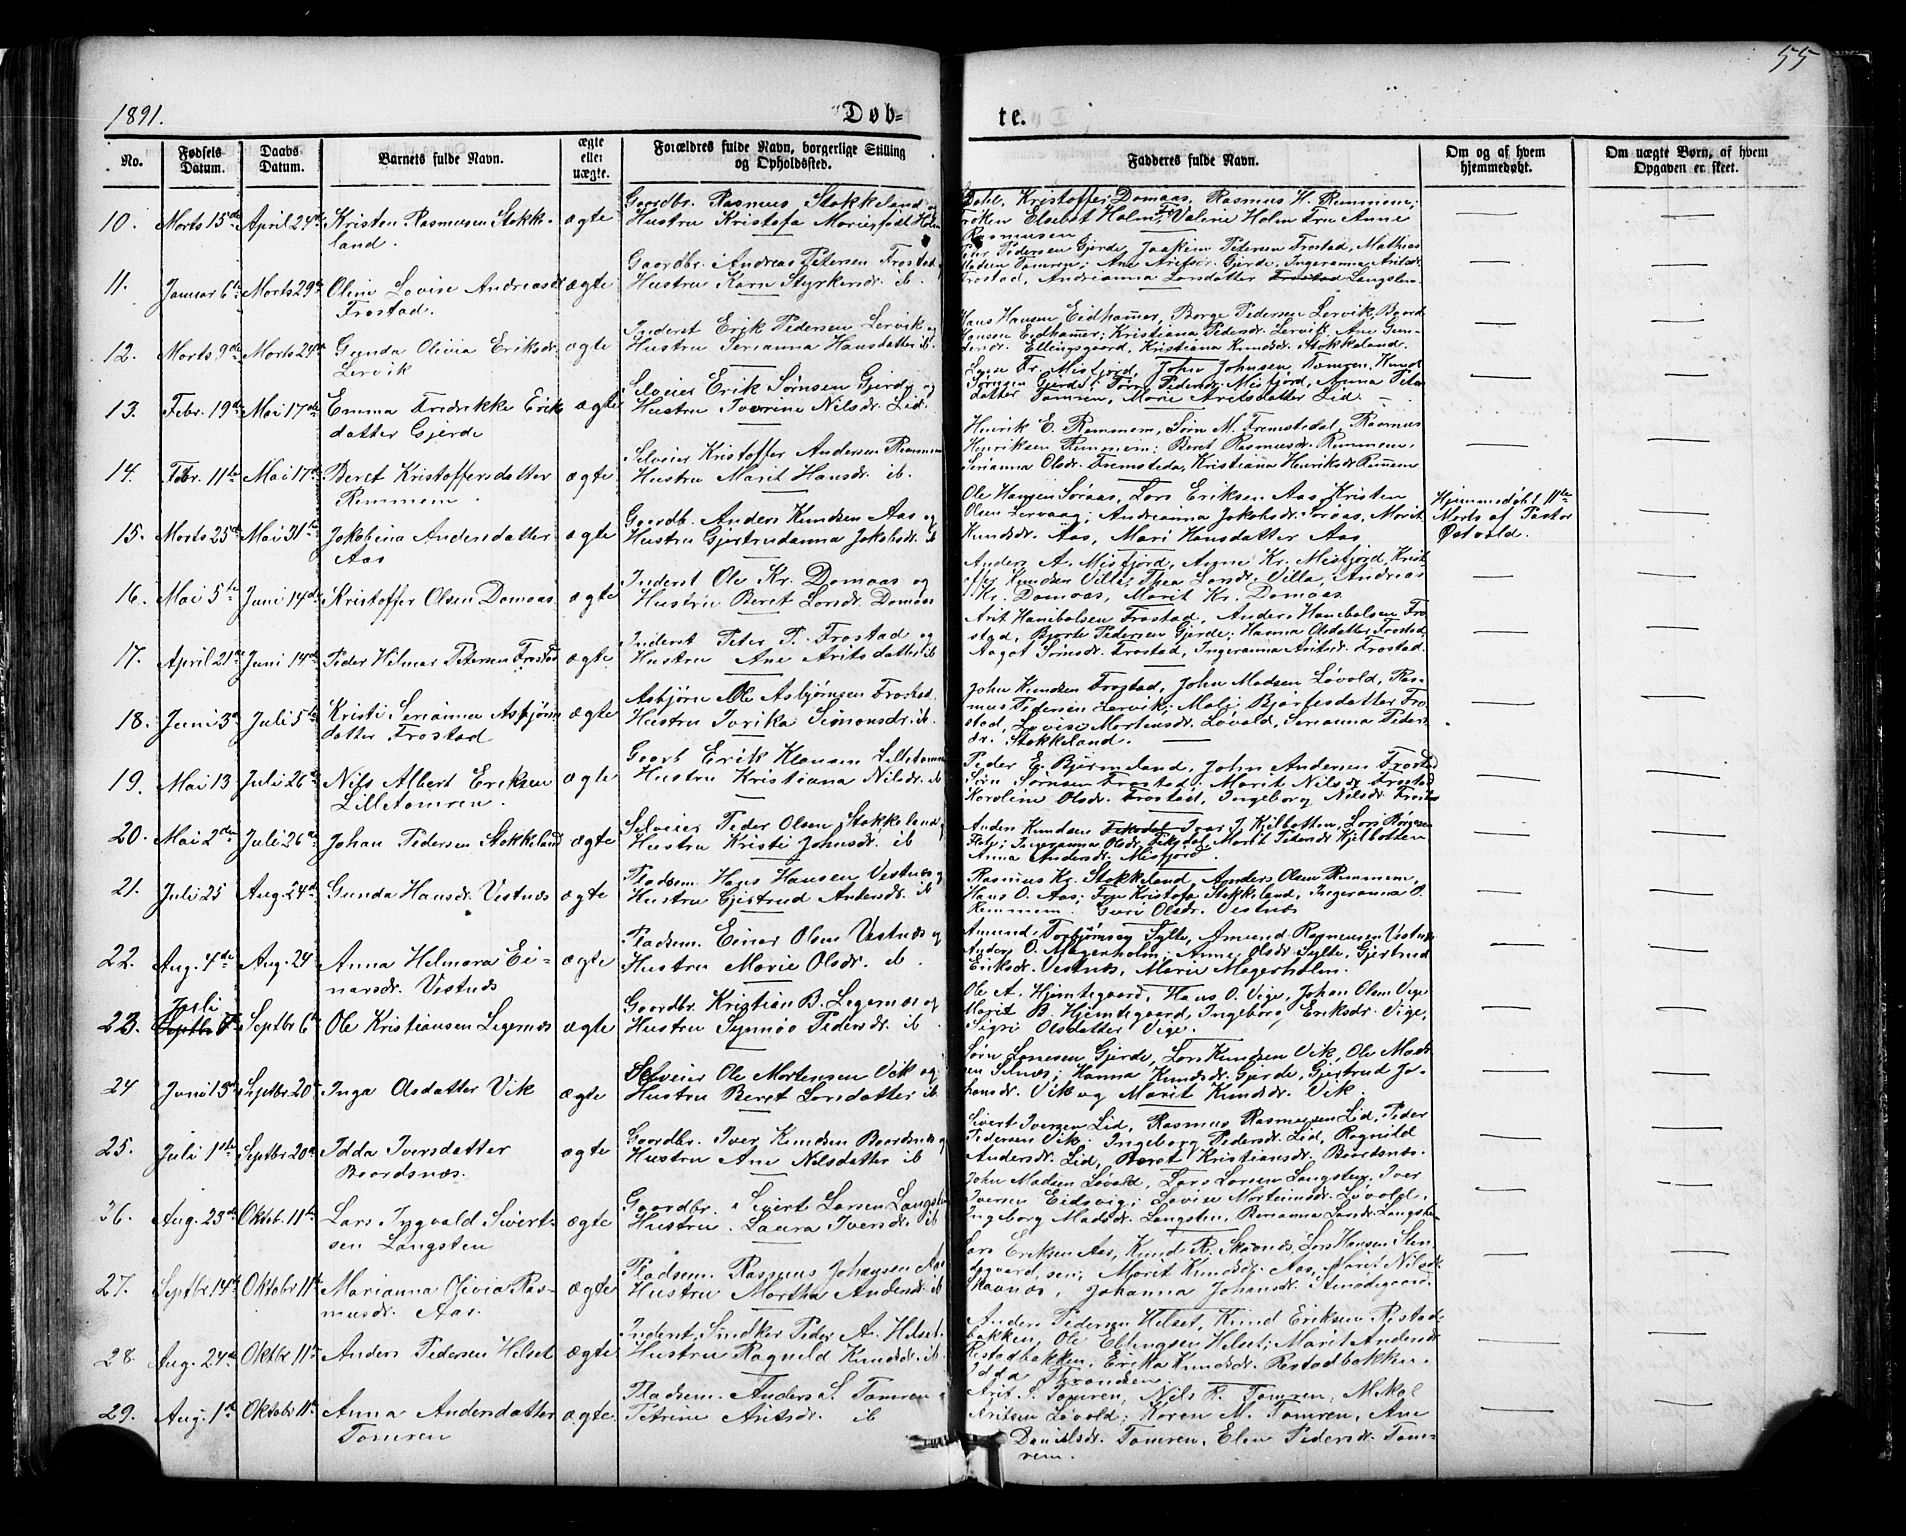 55
1891.
Døb-
te.
No.
Fødsels Datum.
Daabs Datum.
Barnets fulde Navn.
ægte eller uægte.
Forældres fulde Navn, borgerlige Stilling og Opholdssted.
Fadderes fulde Navn.
Om og af hvem hjemmedøbt.
Om uægte Børn, af hvem Opgaven er skeet.
10. Marts 15de April 24de Kristen Rasmusen Stokke- ægte Gaardbr. Rasmus Stokkeland og
land. Hustru Kristofa Marie født Holm
Dahl, Kristoffer Domaas, Rasmus H. Remmem;
Frøken Elsebet Holm, Fr. Valerie Holm Fru Anne
Rasmusen
11. Januar 6te Marts 29de Oline Lovise Andreasdr ægte Gaardbr. Andreas Petersen Frostad og
Frostad. Hustru Karn Styrkersdr. ib.
Peter Pedersen Gjerde, Joakim Pedersen Frostad, Mathias
Madsen Tomren; Ane Arifsdr. Gjerde, Ingeranna Aritsdr.
Frostad, Andrianna Larsdatter Frostad Langsten.
12. Marts 9de Marts 29de Gunda Olivia Eriksdr. ægte Inderst Erik Pedersen Lervik og
Lervik Hustru Serianna Hansdatter ib.
Hans Hansen Eidhamer, Børge Pedersen Lervik, Baard
Hansen Eidhamer; Kristiana Pedersdr. Lervik, Ane Gun-
dersdr. Ellingsgaard, Kristiana Knudsdr. Stokkeland.
13. Febr. 19de Mai 17de Emma Fredrikke Eriks ægte Selveier Erik Sørnsen Gjerde og
datter Gjerde Hustru Iverine Nilsdr. Lid.
Fr. Misfjord, John Johnsen Tomren, Knud
Sørnsen Gjerde; Pedersdr. Misfjord, Anna Peter
datter Tomren, Marie Aritsdatter Lid.
14. Febr. 11te Mai 17de Beret Kristoffersdatter ægte Selveier Kristoffer Andersen Remmem
Remmem. Hustru Marit Hansdr. ib.
Henrik E. Remmem, Sørn M. Fremstedal, Rasmus
Henriksen Remmem; Beret Rasmusdr. Remmem,
Serianna Olsdr. Fremsteda, Kristiana Henriksdr Remem
15. Marts 25de Mai 31te Jakobina Andersdatter ægte Gaardb. Anders Knudsen Aas og
Aas Hustru Gjertrudanna Jakobsdr. ib
Ole Hansen Søraas, Lars Eriksen Aas, Kristen
Olsen Lervaag; Andrianna Jakobsdr. Søraas, Marit
Knudsdr. Aas, Mari Hansdatter Aas
Hjemmedøbt 11te
Marts af Pastor
Østvold.
16. Mai 5te Juni 14de Kristoffer Olsen Domaas ægte Inderst Ole Kr. Domaas og
Hustru Beret Larsdr. Domaas
Anders A. Misfjord, Kr. Misfjord, Krist
offer Knudsen Villa; Thea Larsdr. Villa, Andreas
Kr. Domaas, Marit Kr. Domaas
17. April 21de Juni 14de Peder Hilmar Petersen Frostad ægte Inderst Peter P. Frostad og
Hustru Ane Aritsdatter ib
Arit Hanibalsen Frostad, Anders Hanibalsen Fro
stad, Bjørte Pedersen Gjerde; Hanna Olsdatter Frostad,
Aagot Sørnsdr. Frostad, Ingeranna Aritsdr. Frostad.
18. Juni 3de Juli 5te Kristi Serianna Asbjørns ægte Asbjørn Ole Asbjørnsen Frostad,
datter Frostad Hustru Ivrika Simonsdr. ib.
John Knudsen Frostad, John Madsen Løvold, Ras-
mus Pedersen Lervik; Mali Bjørfesdatter Fro
stad, Lovise Mortensdr. Løvold, Serianna Peders
dr. Stokkeland.
19. Mai 13 Juli 26de Nils Albert Eriksen ægte Gaarb Erik Klausen Lilletomren
Lilletomren. Hustru Kristiana Nilsdr. ib
Peder E. Bjermeland, John Andersen Frostad
Sørn Sørnsen Frostad, Marit Nilsdr. Frostad
Karoline Olsdr. Frostad, Ingeborg Nilsdr. Frostad
20. Mai 2den Juli 26de Johan Pedersen Stokkeland ægte Selveier Peder Olsen Stokkeland og
Hustru Kristi Johnsdr. ib
Anders Knudsen Fiksdal Ivar J. Kjelbotten, Lars Børgesen
Flate; Ingeranna Olsdr. Fiksdal, Marit Petersdr Kjelbotten
Anna Andersdr. Misfjord.
21. Juli 25 Aug. 24de Gunda Hansdr. Vestnæs ægte Pladsem. Hans Hansen Vestnæs og
Hustru Gjertrud Andersdr. ib
Rasmus Kr. Stokkeland, Anders Olsen Remmem,
Hans O. Aas; Fru Kristofa Stokkeland, Ingeranna O.
Remmem. Guri Olsdr. Vestnæs
22. Aug. 4de Aug. 24 Anna Helmara Ei- ægte Pladsem. Einar Olsen Vestnæs og
narsdr. Vestnæs Hustru Marie Olsdr. ib.
Amund Torbjørnsen Sylte, Amund Rasmusen Vestnæs
Anders O. Magerholm; Anne Olsdr. Sylte, Gjertrud
Eriksdr. Vestnæs, Marie Magerholm.
23. Juli Septbr. 6te Ole Kristiansen Legernæs ægte Gaardbr. Kristian B. Legernæs og
Hustru Synnøv Pedersdr. ib.
Ole A. Hjemtegaard, Hans O. Vige, Johan Olsen Vige
Marit B. Hjemtegaard, Ingeborg Eriksdr. Vige,
Sigri Olsdatter Vige.
24 Juni 15de Septbr. 20de Inga Olsdatter Vik ægte Selveier Ole Mortensen Vik og
Hustru Beret Larsdatter ib
Sørn Gjerde, Lars Knudsen Vik, Ole Mads
en Selnæs; Hanna Knudsdr. Gjerde, Gjertrud Jo-
hansdr. Vik og Marit Knudsdr. Vik.
25. Juli 1ste Septbr. 20de Idda Iversdatter ægte Gaardbr. Iver Knudsen Baardsnæs og
Baardsnæs. Hustru Ane Nilsdatter ib
Sivert Iversen Lid, Rasmus Rasmussen Lid, Peder
Pedersen Vik; Ingeborg Pedersdr. Lid, Ragnild
Andersdr. Lid, Beret Kristiansdr. Baardsnæs.
26. Aug. 23de Oktob. 11te Lars Ingvald Sivert- ægte Gaardbr. Sivert Larsen Langsten
sen Langsten Hustru. Laura Iversdr. ib
John Madsen Løvold, Lars Larsen Langsten, Iver
Iversen Eidsvig; Lovise Mortensdr. Løvold,
Ingeborg Madsdr. Langsten, Berianna Larsdr. Langsten
27. Septbr. 14de Oktobr. 11te Marianna Olivia Ras- ægte Pladsem. Rasmus Johansen Aas
musdr. Aas. Hustru Martha Andersdr. ib
Lars Eriksen Aas, Knud R. Skavnæs, Lars Hansen Sten
ødegaard, sen; Marit Knudsdr. Aas, Marit Nilsdr.
Skavnæs, Johanna Johansdr. Stenødegaard
28. Aug. 24de Oktbr. 11te Anders Pedersen Helset ægte Inderst, Smidker Peder A. Helset.
Hustru Ragnild Knudsdr. ib
Anders Pedersen Helset, Knud Eriksen Restad-
bakken, Ole Ellingsen Helset; Marit Andersdr
Restadbakken, Erika Knudsdr. Restadbakken
Idda Transdsen.
29. Aug. 1ste Oktobr 11te Anna Andersdatter ægte Pladsem. Anders S. Tomren og
Tomren Petrine Aritsdr. ib
Arit S. Tomren, Nils R. Tomren, Mikal
Aritsen Løvold; Karen M. Tomren, Ane
Danielsdr. Tomren, Elen Pedersdr. Tom-
ren.